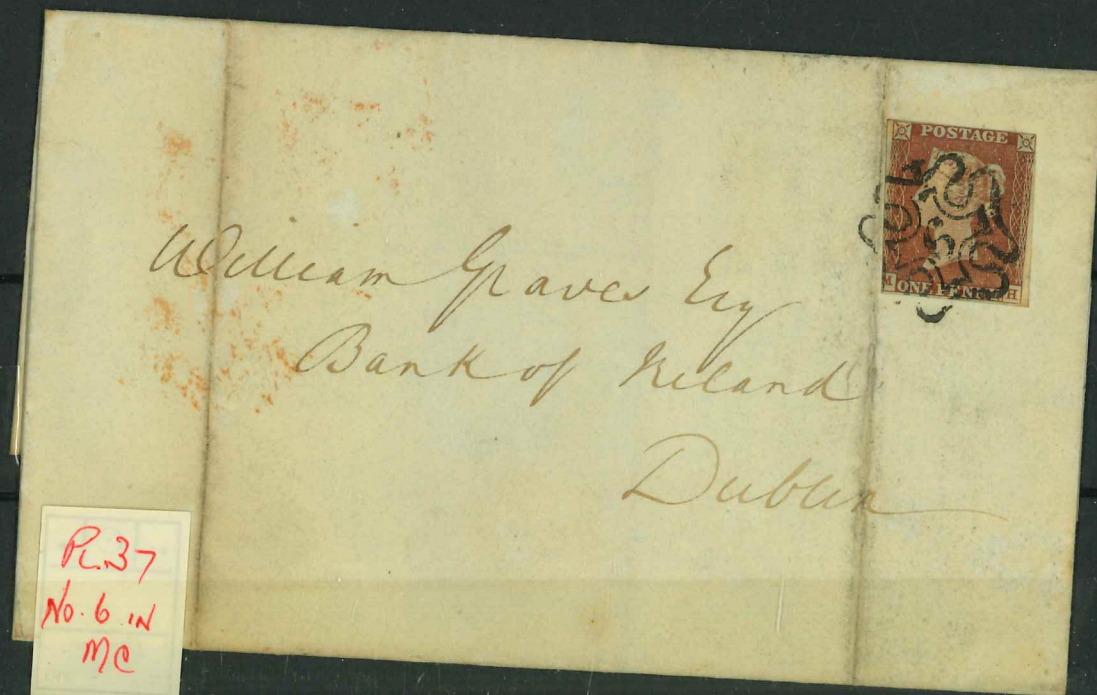 POSTAGE
6
M ONE PENNY H
William Graves Esq
Bank of Ireland
Dublin
PL.37
No. 6 IN
MC